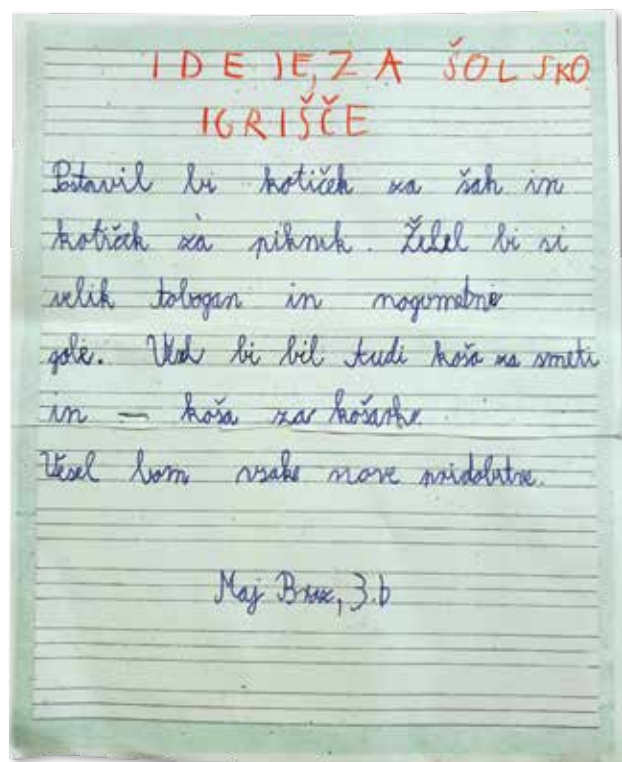 IDEJE ZA ŠOLSKO
IGRIŠČE
Postavil bi kotiček za šah in
kotiček za piknik. Želel bi si
velik tobogan in nogometne
gole. Vesel bi bil tudi koša za smeti
in – koša za košarko.
Vesel bom vsake nove pridobitve.
Maj Brez, 3.b